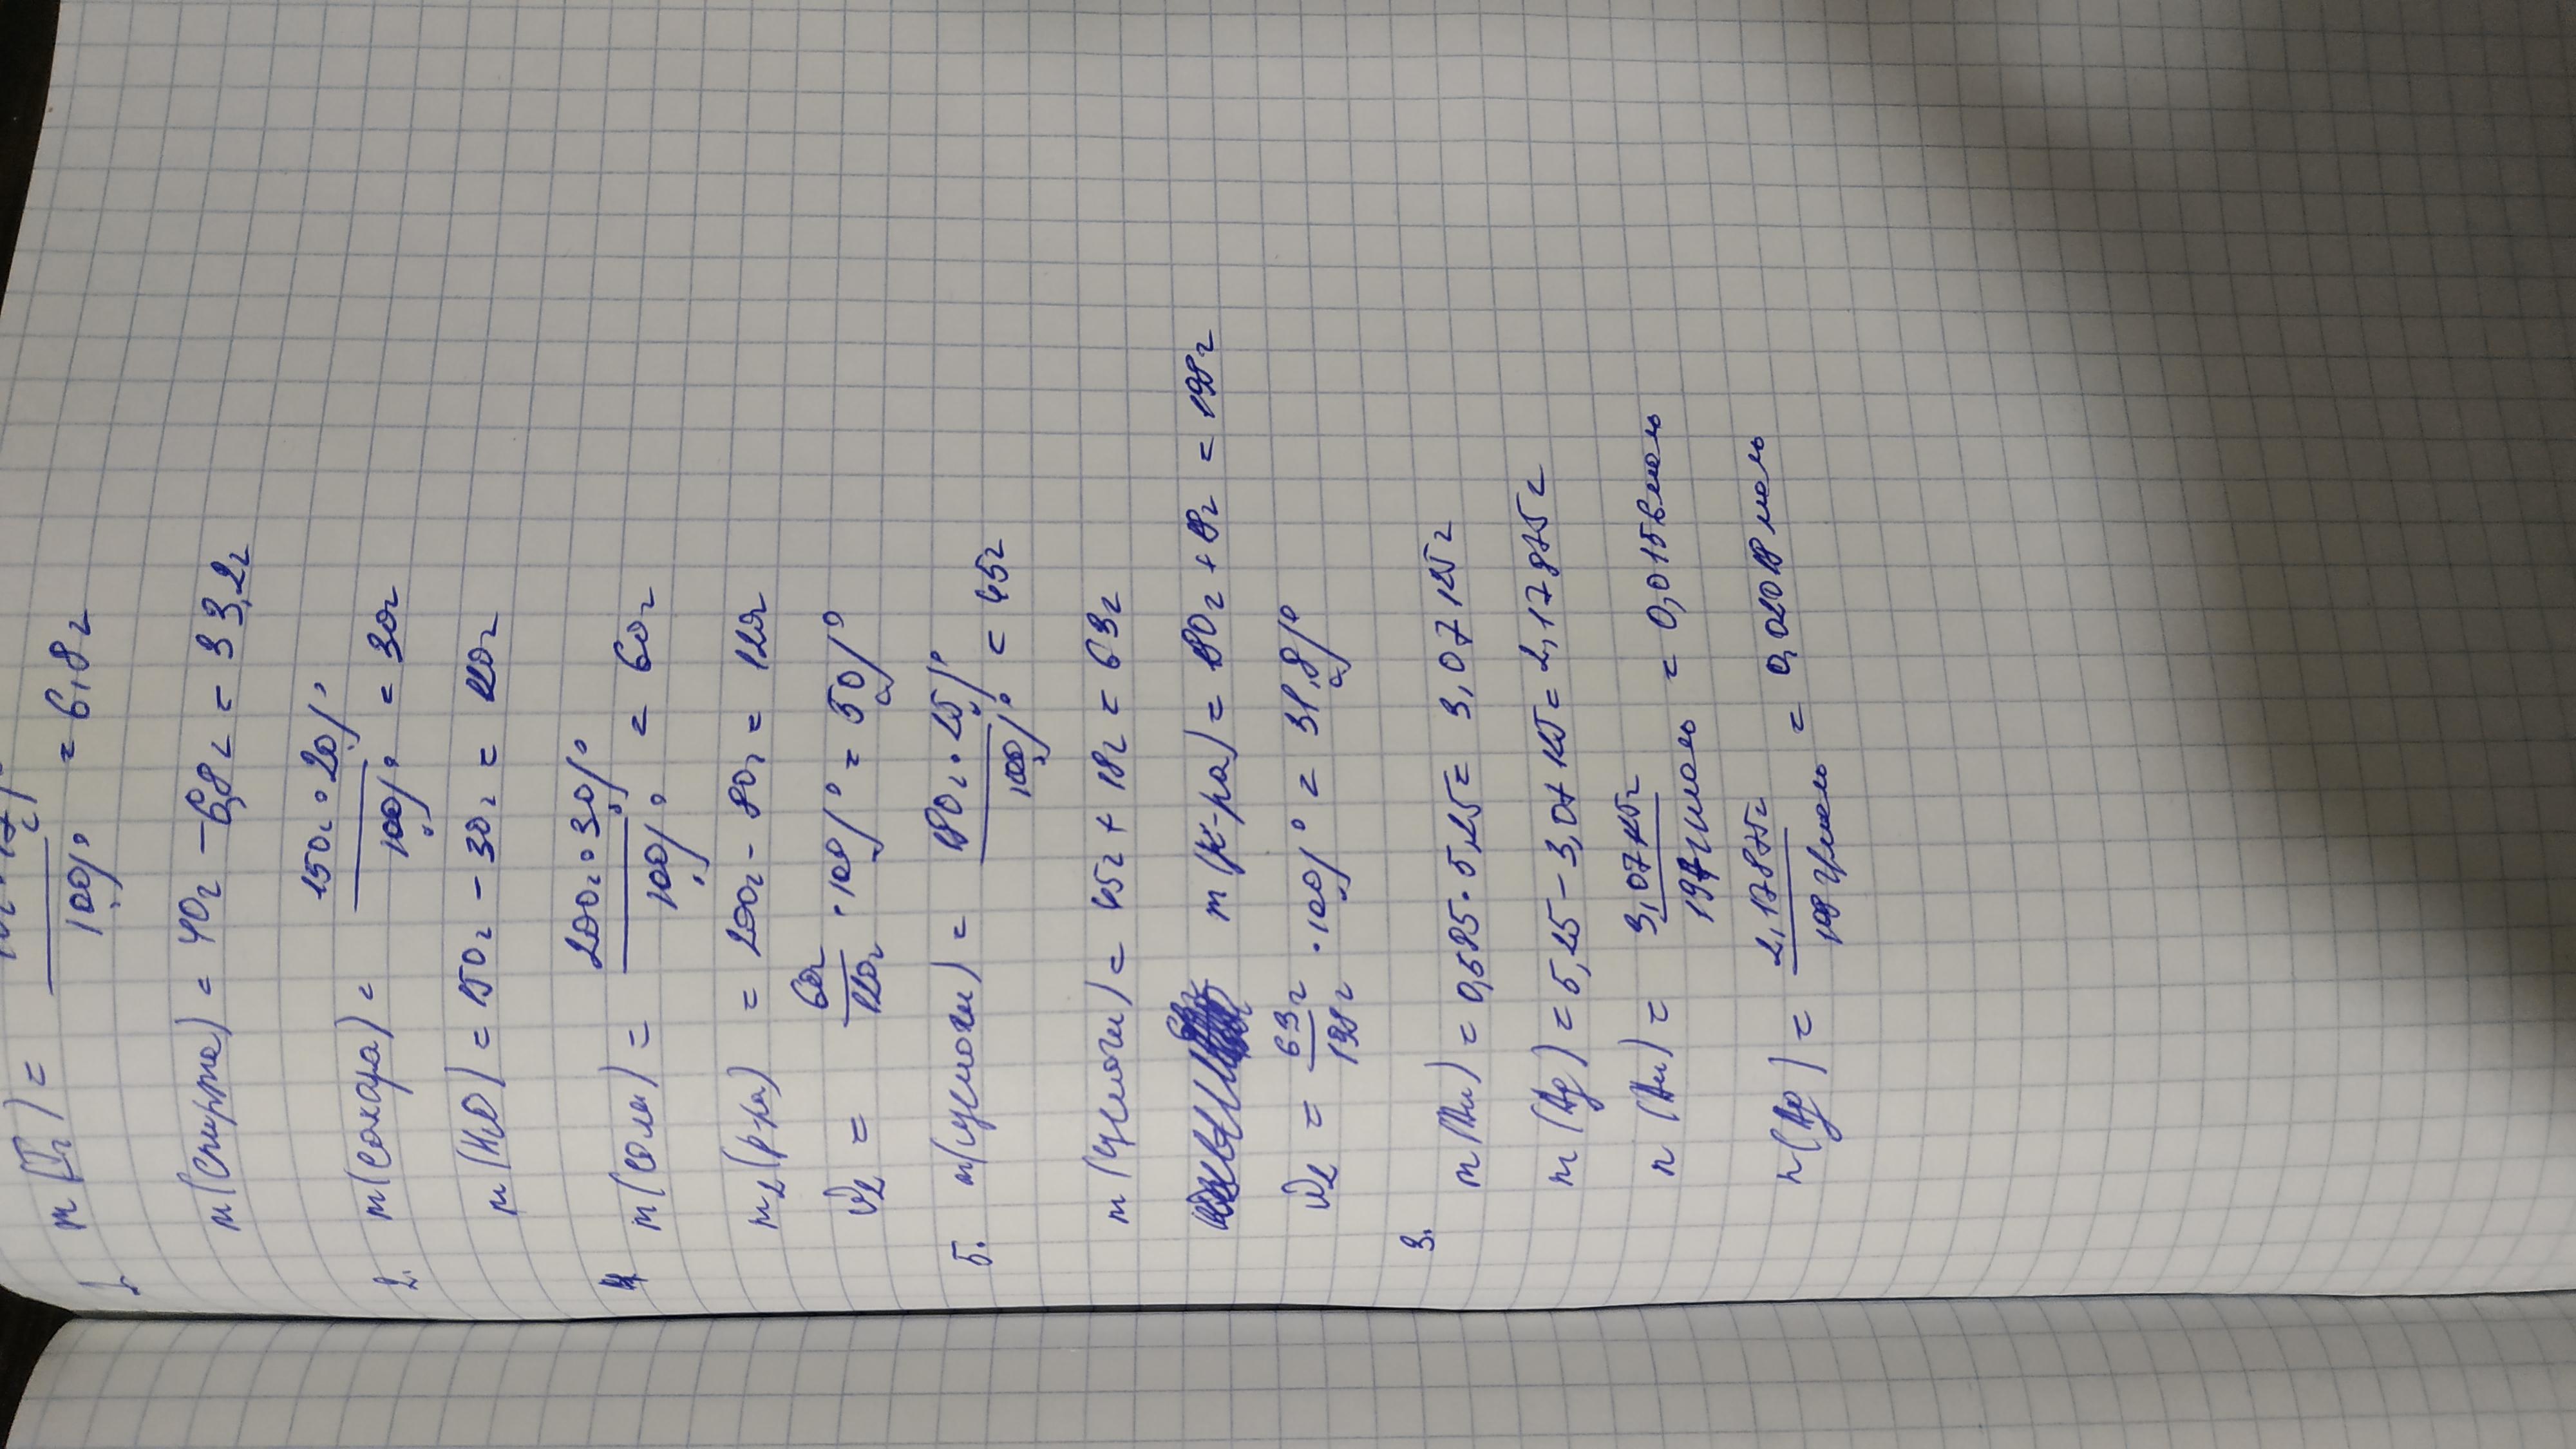 1. m(J₂) = /100% = 6,8г
m(спирта) = 40г - 6,8г = 33,2г
2. m(сахара) = 150г · 20% / 100% = 30г
m(H₂O) = 150г - 30г = 120г
4 m(соли) = 200г · 30% / 100% = 60г
m₂(р-ра) = 200г - 80г = 120г
W₂ = 60г / 120г · 100% = 50%
5. m(щелочи) = 180г · 25% / 100% = 45г
m(щелочи) = 45г + 18г = 63г
m(к-ра) = 180г + 18г = 198г
W₂ = 63г / 198г · 100% = 31,8%
3.
m(Au) = 0,585 · 5,25 = 3,07125г
m(Ag) = 5,25 - 3,07125 = 2,17875г
n(Au) = 3,07125г / 197г/моль = 0,0156моль
n(Ag) = 2,17875г / 108г/моль = 0,0202моль